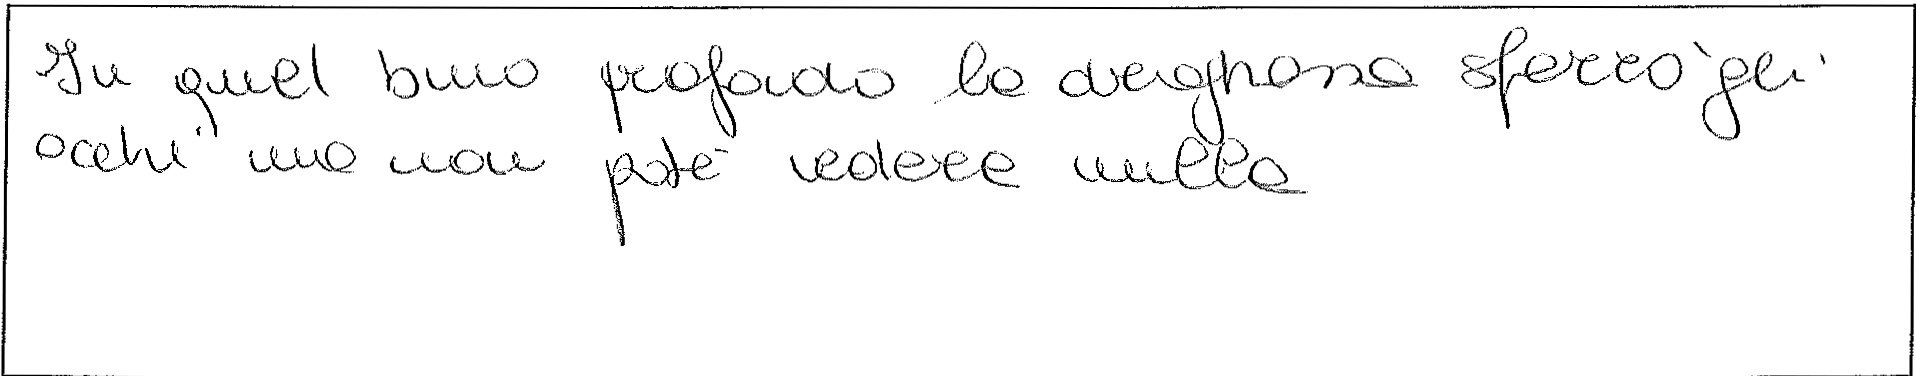 In quel buio profondo la sferrò gli
occhi ma non poté vedere nulla